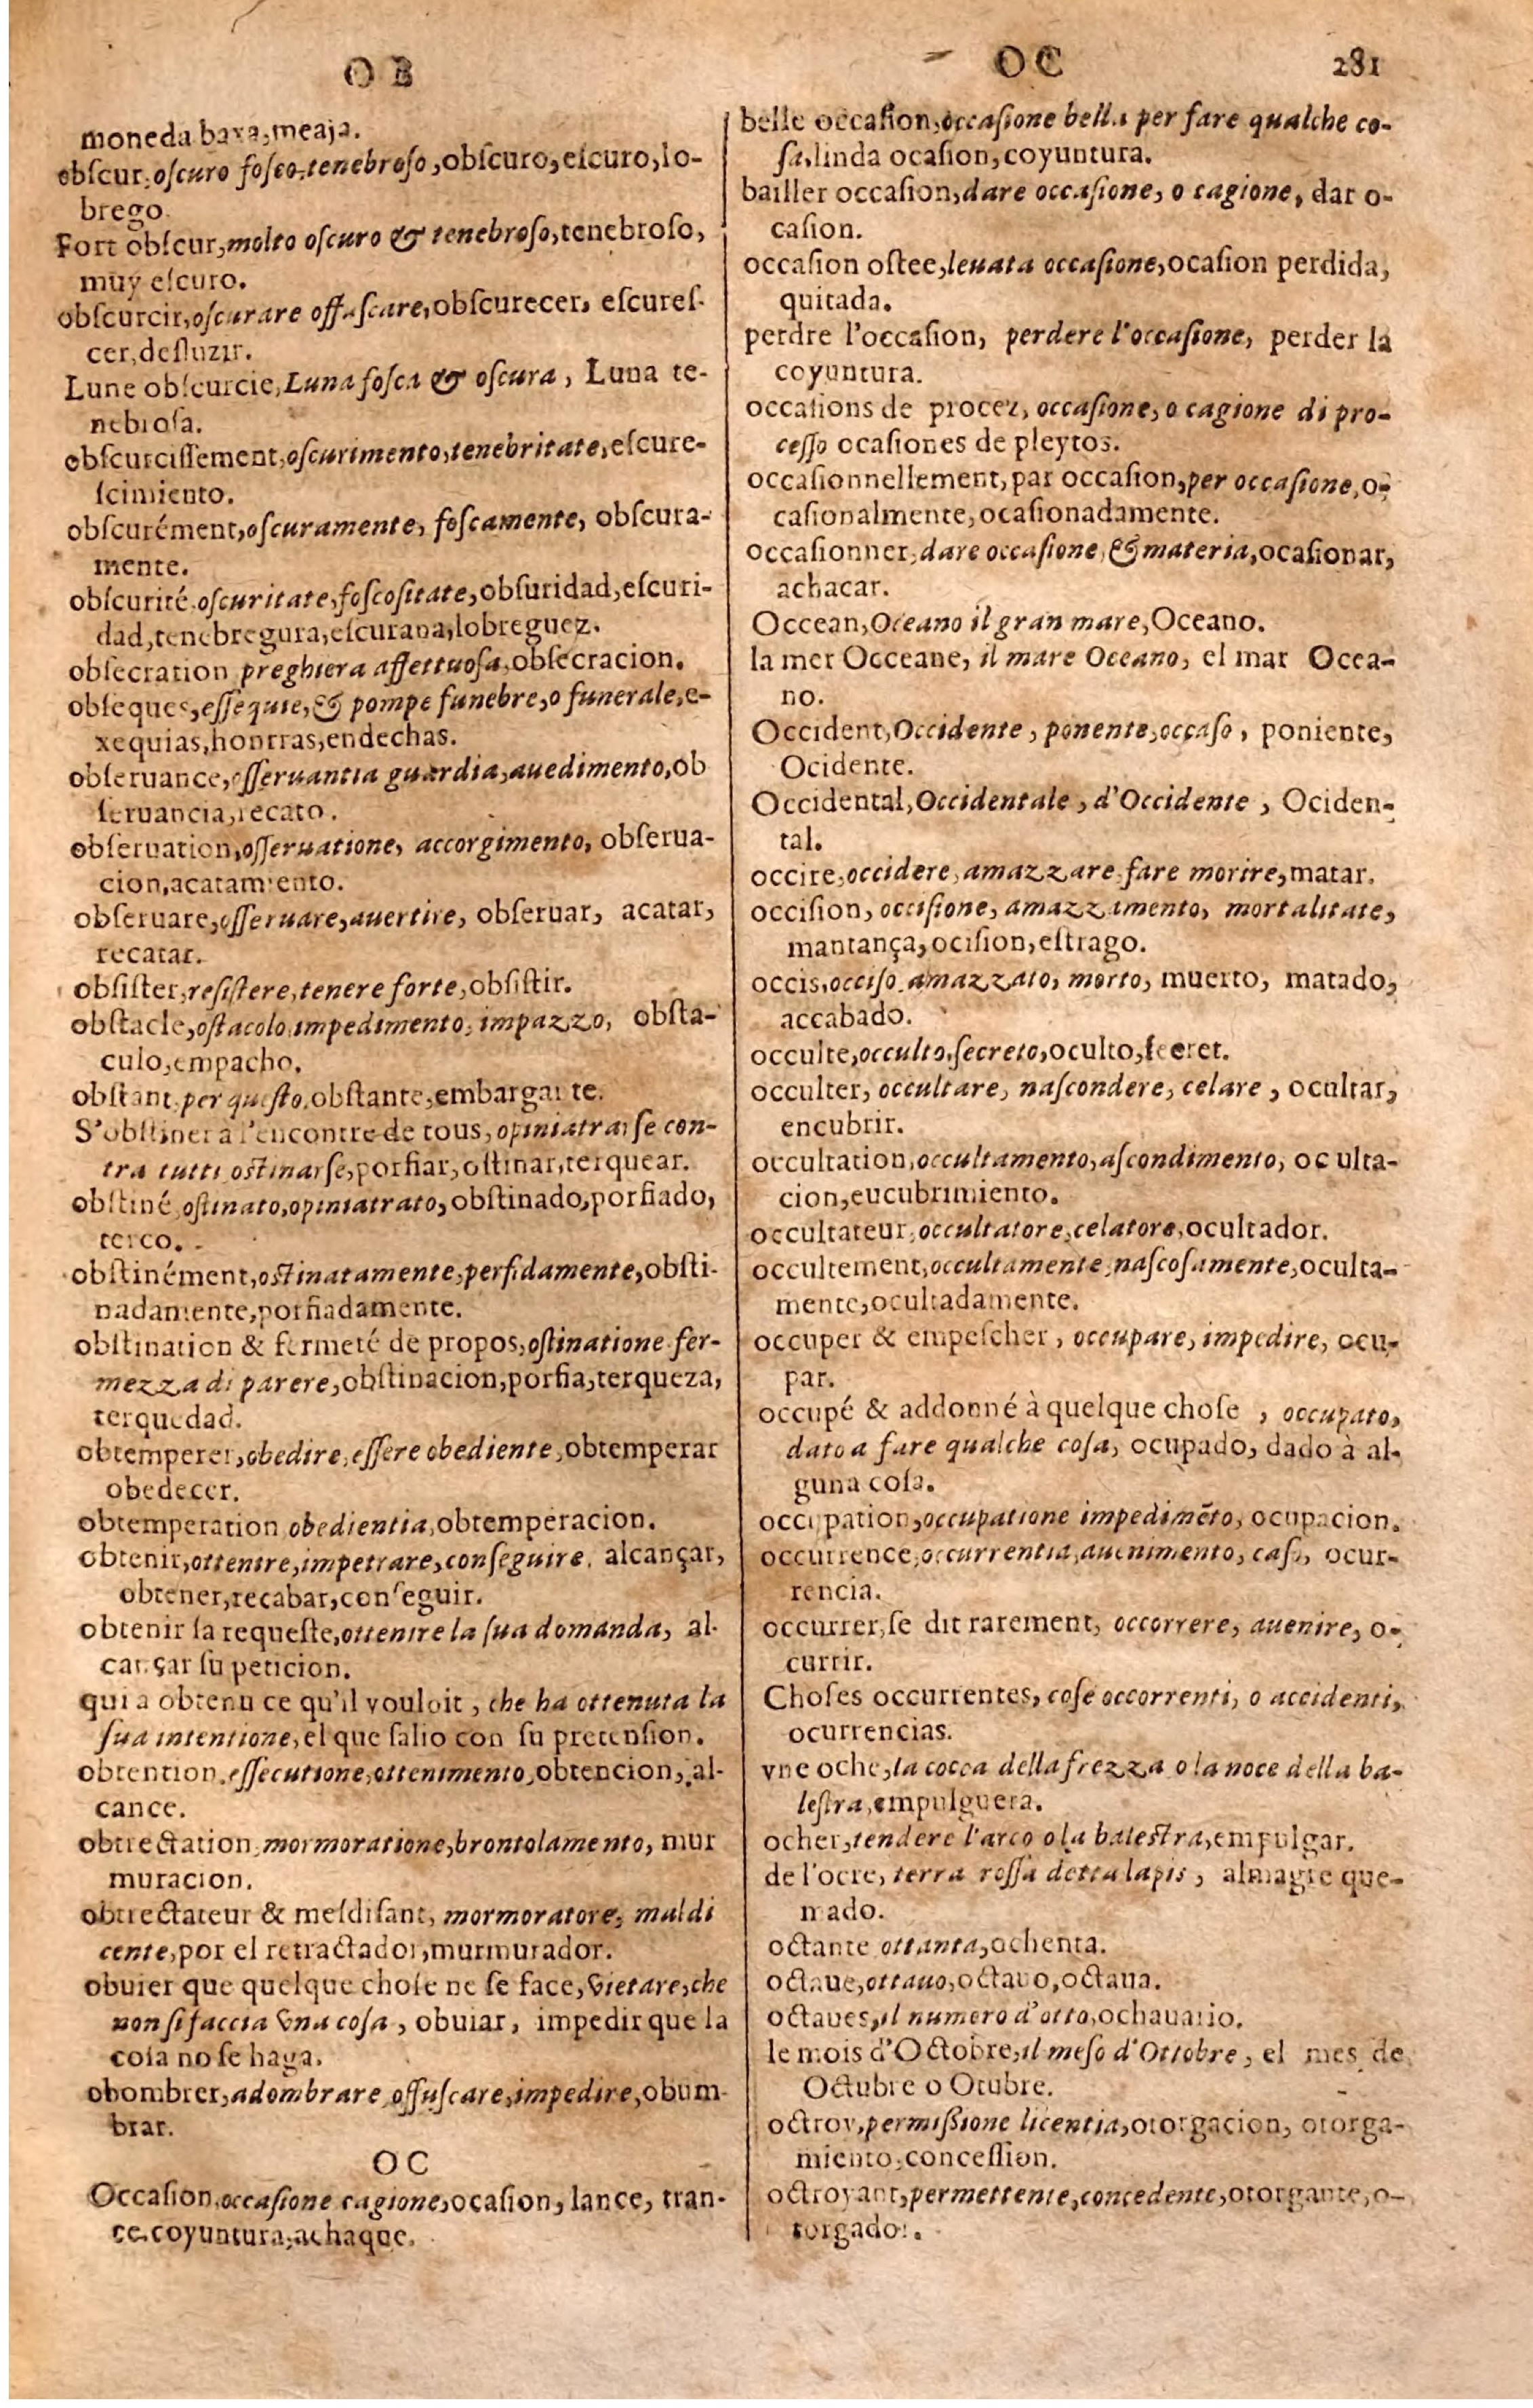 O B
moneda baxa, meaja.
obſcur, oſcuro foſco, tenebroſo, obſcuro, eſcuro, lo-
brego.
Fort obſcur, molto oſcuro & tenebroſo, tenebroſo,
muy eſcuro.
obſcurcir, oſcurare offuſcare, obſcurecer, eſcureſ-
cer, deſluzir.
Lune obſcurcie, Luna foſca & oſcura, Luna te-
nebroſa.
obſcurciſſement, oſcurimento, tenebritate, eſcure-
ſcimiento.
obſcurément, oſcuramente, foſcamente, obſcura-
mente.
obſcurité, oſcuritate, foſcoſitate, obſuridad, eſcuri-
dad, tenebregura, eſcurana, lobreguez.
obſecration preghiera affettuoſa, obſecracion.
obſeques, eſſequie, & pompe funebre, o funerale, e-
xequias, honrras, endechas.
obſeruance, oſſeruantia guardia, auedimento, ob
ſeruancia, recato.
obſeruation, oſſeruatione, accorgimento, obſerua-
cion, acatamiento.
obſeruare, oſſeruare, auertire, obſeruar, acatar,
recatar.
obſiſter, reſiſtere, tenere forte, obſiſtir.
obſtacle, oſtacolo, impedimento, impazzo, obſta-
culo, empacho.
obſtant per queſto, obſtante, embargante.
S'obſtiner à l'encontre de tous, opiniatrarſe con-
tra tutti oſtinarſe, porfiar, oſtinar, terquear.
obſtiné, oſtinato, opiniatrato, obſtinado, porfiado,
terco.
obſtinément, oſtinatamente, perfidamente, obſti-
nadamente, porfiadamente.
obſtination & fermeté de propos, oſtinatione fer-
mezza di parere, obſtinacion, porfia, terqueza,
terquedad.
obtemperer, obedire, eſſere obediente, obtemperar
obedecer.
obtemperation obedientia, obtemperacion.
obtenir, ottenire, impetrare, conſeguire, alcançar,
obtener, recabar, conſeguir.
obtenir ſa requeſte, ottenire la ſua domanda, al-
cançar ſu peticion.
qui a obtenu ce qu'il vouloit, che ha ottenuta la
ſua intentione, el que ſalio con ſu pretenſion.
obtention, eſſecutione, ottenimento, obtencion, al-
cance.
obtrectation, mormoratione, brontolamento, mur
muracion.
obtrectateur & meſdiſant, mormoratore, maldi
cente, por el retractador, murmurador.
obuier que quelque choſe ne ſe face, vietare, che
non ſi faccia vna coſa, obuiar, impedir que la
coſa no ſe haga.
obombrer, adombrare offuſcare, impedire, obum-
brar.
O C
Occaſion, occaſione cagione, ocaſion, lance, tran-
ce, coyuntura, achaque.
O C 281
belle occaſion, occaſione bella per fare qualche co-
ſa, linda ocaſion, coyuntura.
bailler occaſion, dare occaſione, o cagione, dar o-
caſion.
occaſion oſtee, leuata occaſione, ocaſion perdida,
quitada.
perdre l'occaſion, perdere l'occaſione, perder la
coyuntura.
occaſions de procez, occaſione, o cagione di pro-
ceſſo ocaſiones de pleytos.
occaſionnellement, par occaſion, per occaſione, o-
caſionalmente, ocaſionadamente.
occaſionner, dare occaſione, & materia, ocaſionar,
achacar.
Occean, Oceano il gran mare, Oceano.
la mer Occeane, il mare Oceano, el mar Ocea-
no.
Occident, Occidente, ponente, occaſo, poniente,
Ocidente.
Occidental, Occidentale, d'Occidente, Ociden-
tal.
occire, occidere, amazzare fare morire, matar.
occiſion, occiſione, amazzamento, mortalitate,
mantança, ociſion, eſtrago.
occis, occiſo, amazzato, morto, muerto, matado,
accabado.
occulte, occulto, ſecreto, oculto, ſecret.
occulter, occultare, naſcondere, celare, ocultar,
encubrir.
occultation, occultamento, aſcondimento, oculta-
cion, eucubrimiento.
occultateur, occultatore, celatore, ocultador.
occultement, occultamente, naſcoſamente, oculta-
mente, ocultadamente.
occuper & empeſcher, occupare, impedire, ocu-
par.
occupé & addonné à quelque choſe, occupato,
dato a fare qualche coſa, ocupado, dado à al-
guna coſa.
occupation, occupatione impedimẽto, ocupacion.
occurrence, occurrentia, auenimento, caſo, ocur-
rencia.
occurrer, ſe dit rarement, occorrere, auenire, o-
currir.
Choſes occurrentes, coſe occorrenti, o accidenti,
ocurrencias.
vne oche, la cocca della frezza o la noce della ba-
leſtra, empulguera.
ocher, tendere l'arco o la baleſtra, empulgar.
de l'ocre, terra roſſa detta lapis, almagre que-
mado.
octante ottanta, ochenta.
octaue, ottauo, octauo, octaua.
octaues, il numero d'otto, ochauario.
le mois d'Octobre, il meſo d'Ottobre, el mes de
Octubre o Otubre.
octroy, permiſſione licentia, otorgacion, otorga-
miento, conceſſion.
octroyant, permettente, concedente, otorgante, o-
torgador.